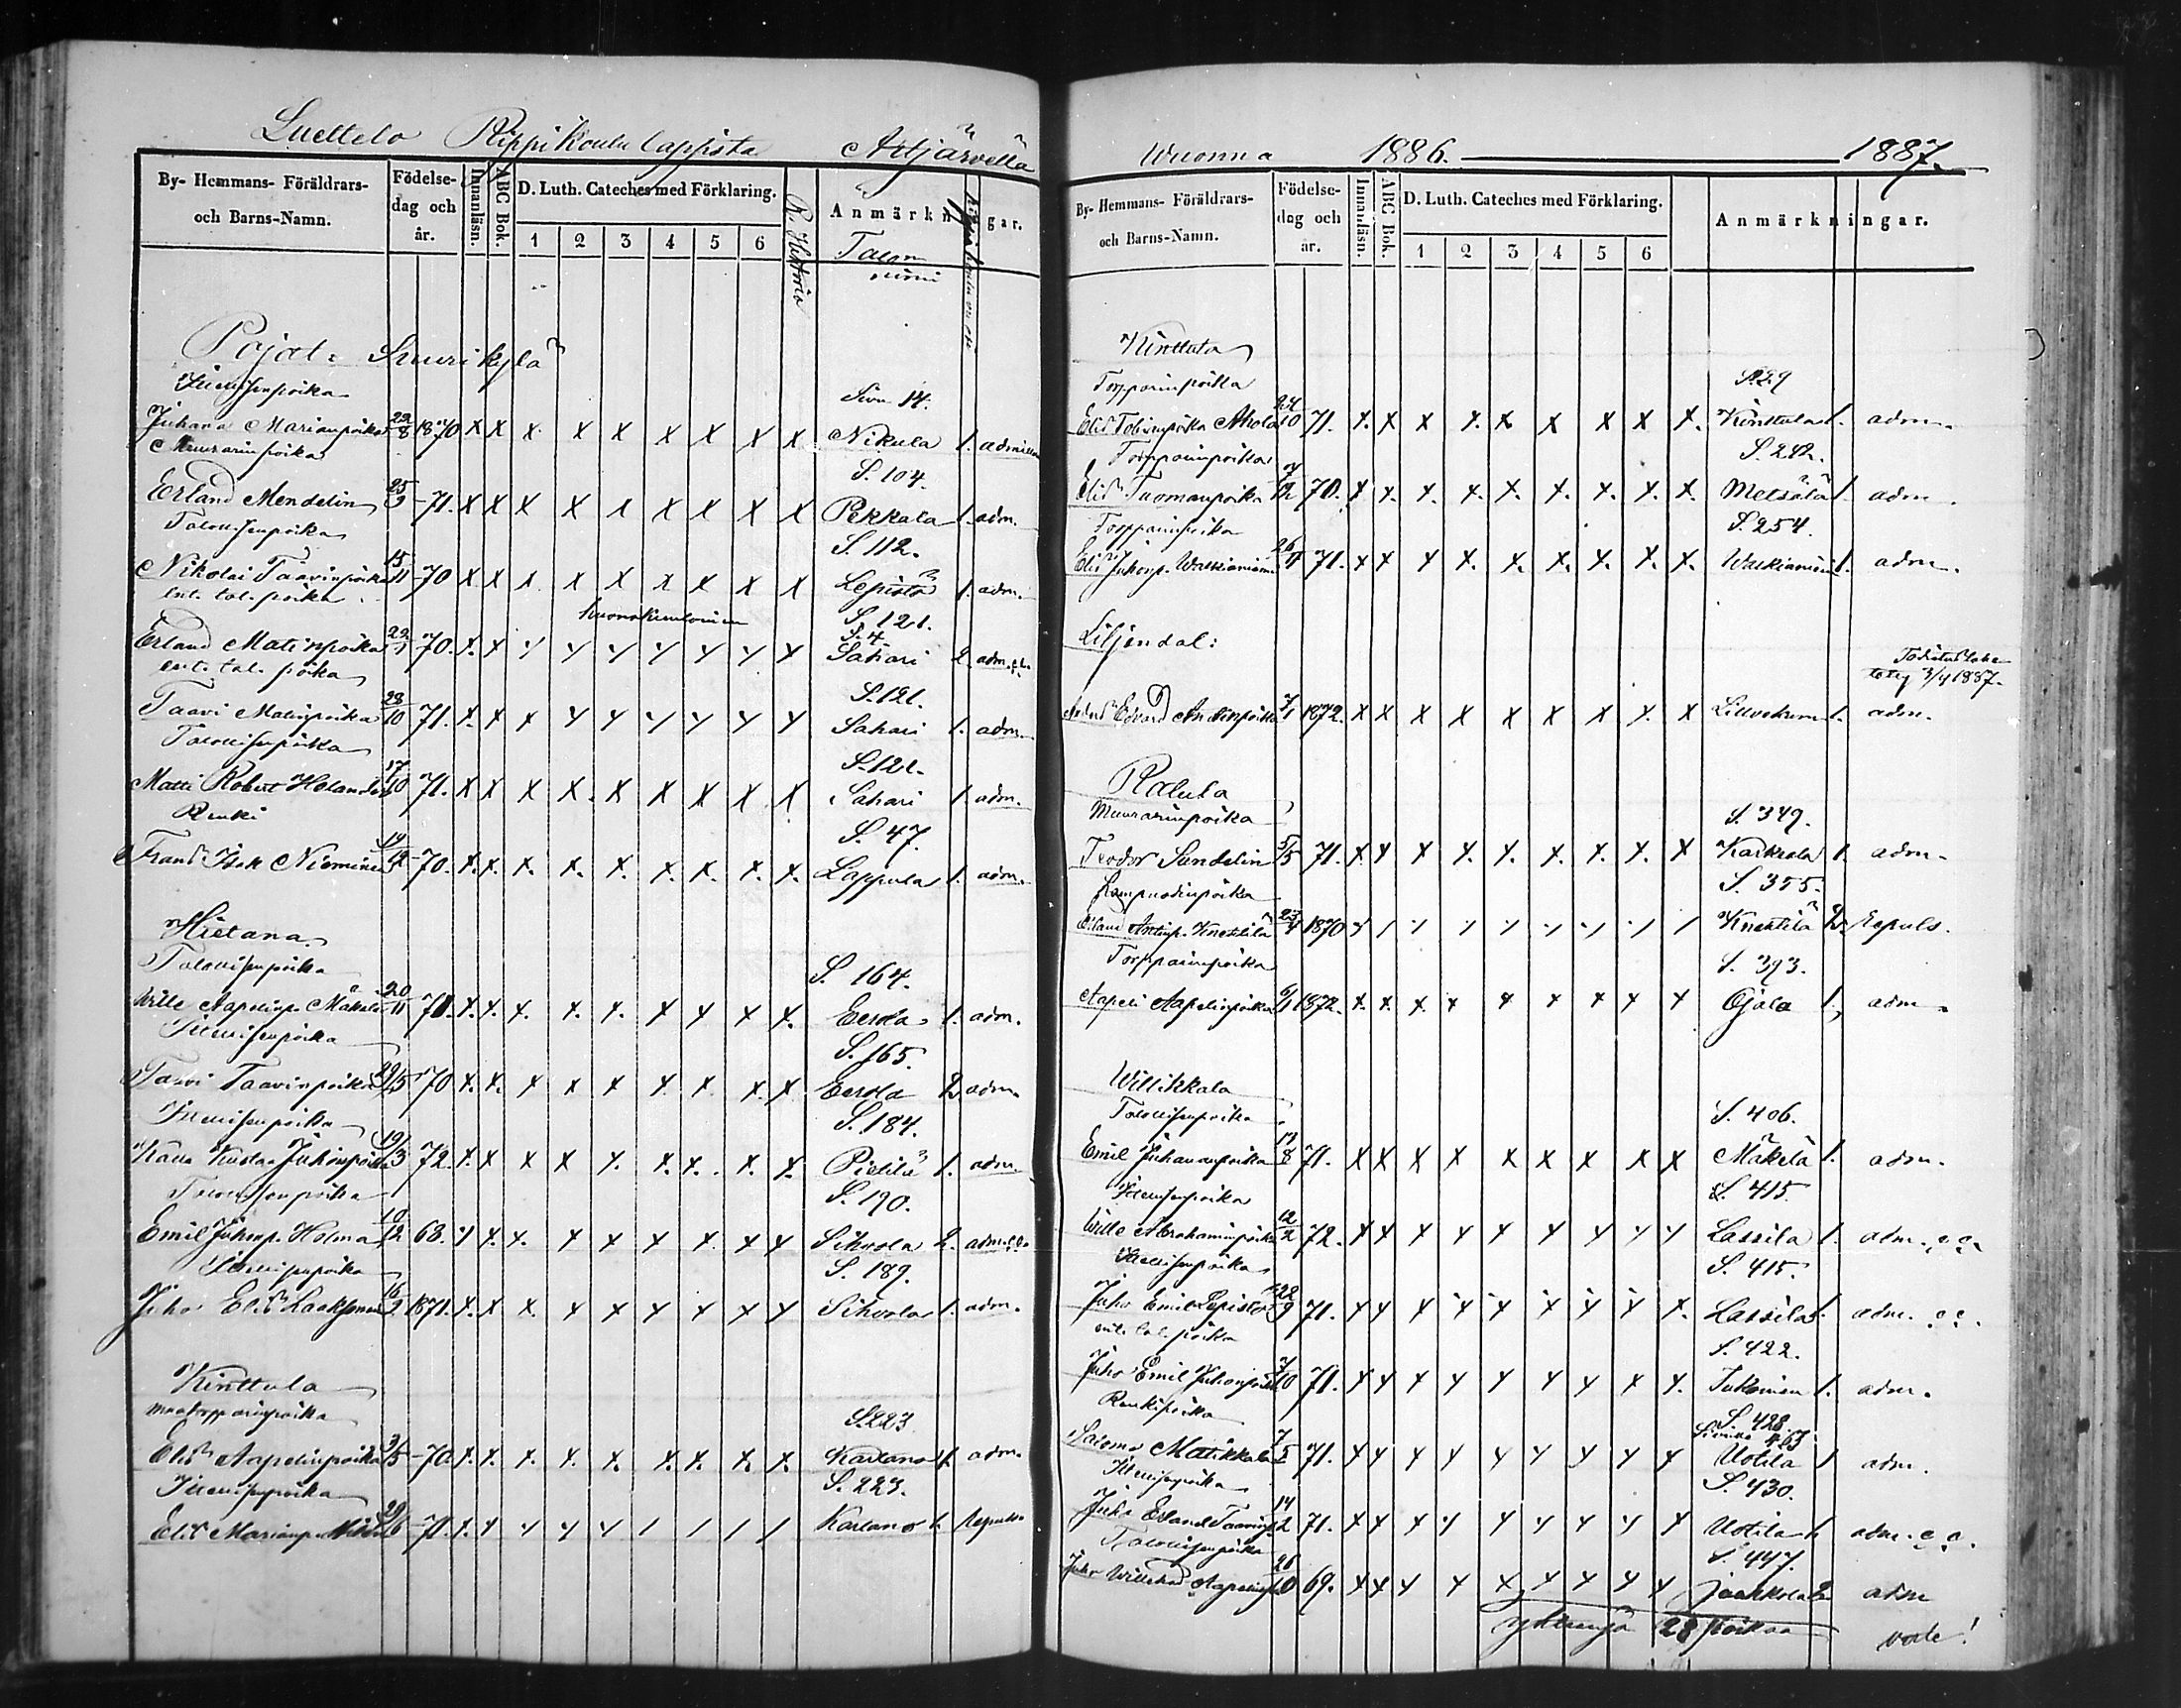 Luettelo Rippikoulu lapsista Artjärvellä
By- Hemmans- Föräldrars- och Barns-Namn. Födelse-dag och år. Innanläsn. ABC Bok. D. Luth. Cateches med Förklaring. 1 2 3 4 5 6 B. Historia Anmärkningar.
Talon nimi
Pojat: Suurikylä
Itsellisenpoika Sivu 14.
Juhana Marianpoika 22/8 1870 x x x x x x x x x Nikula 1.
Muurarinpoika S. 104.
Erland Mendelin 25/3 -71. x x x x x x x x x Pekkala 1. adm.
Talollisenpoika S. 112.
Nikolai Taavinpoika 15/11 -70 x x x x x x x x x Lepistö 1. adm.
ent. tal. poika S. 121.
S. 4.
Erland Matinpoika 70. x x x x x x x x x Sahari 2. adm.
ent. tal. poika S. 121.
Taavi Matinpoika 28/10 71. x x x x x x x x x Sahari 1. adm.
Talollisenpoika S. 121.
Matti Robert Helander 17/10 71. x x x x x x x x x Sahari 1. adm.
Renki S. 47.
Frans Isak Nieminen -70. x x x x x x x x x Lappula 1. adm.
Hietana
Talollisenpoika S. 164.
Wille Aapelinp. Mäkelä 20/11 x x x x x x x x x Eerola 1. adm.
Itsellisenpoika S. 165.
Taavi Taavinpoika 70 x x x x x x x x x Eerola 2 adm.
Itsellisenpoika S. 184.
Kalle Kustaa Juhonpoika 19/3 72. x x x x x x x x x Pietilä 1. adm.
Talollisenpoika S. 190.
Emil Juhonp. Holma 10/12 68. x x x x x x x x x Sihvola 2.
Itsellisenpoika S. 189.
Juho Elis Laaksonen 16/2 1871. x x x x x x x x x Sihvola 1. adm.
Kinttula
S. 223
Elis Aapelinpoika 3/5 -70. x x x x x x x x x Kartano 1. adm.
Itsellisenpoika S. 223.
Elis Marianp. 29/6 -71. x x x x x / / / / Kartano 1.
Wuonna 1886. 1887.
By- Hemmans- Föräldrars- och Barns-Namn. Födelse-dag och år. Innanläsn. ABC Bok. D. Luth. Cateches med Förklaring. 1 2 3 4 5 6 Anmärkningar.
Kinttula
Torpparinpoika S. 29
Elis Tobiaanpoika Ahola 24/10 71. x x x x x x x x x Kinttula 1. adm.
Torpparinpoika S. 242.
Elis Tuomaanpoika 7/12 70. x x x x x x x x x Metsälä 1. adm.
Torpparinpoika S. 254.
Elis Juhonp. 71. x x x x x x x x x 1. adm.
Liljendal:
3/4 1887.
Edvard Antinpoika 7/1 1872. x x x x x x x x x 1. adm.
Ratula
Muurarinpoika S. 349.
Teodor Sundelin 5/5 71. x x x x x x x x x Karkola 1. adm.
Lampuodinpoika S. 355.
Erland Antinp. Knehtilä 23/4 1870 x / x x x x x / / Knehtilä 2. Repuls.
Torpparinpoika S. 393.
Aapeli Aapelinpoika 6/1 1872. x x x x x x x x x Ojala 1. adm.
Willikkala
Talollisenpoika S. 406.
Emil Juhananpoika 17/8 71. x x x x x x x x x Mäkelä 1. adm.
Itsellisenpoika S. 415.
Wille Abrahaminpoika 12/2 72. x x x x x x x x x Lassila 1. adm. c.c.
Itsellisenpoika S. 415.
Juho Emil Lepistö 22/9 71. x x x x x x x x x Lassila 1. adm. c.c.
ent. tal. poika S. 422.
Juho Emil Juhonpoika 7/10 71. x x x x x x x x x 1. adm.
Renkipoika S. 428.
Salomo Matikkala 7/5 71. x x x x x x x x x Uotila 1 adm.
Itsellisenpoika S. 430.
Juho Erland Taavinp. 14/2 71. x x x x x x x x x Uotila 1. adm. c.c.
Talollisenpoika S. 447.
Juho Willehad Aapelinp. 26/10 69. x x x x x x x x x Jaakkola 2 adm
yhteensä 28 poikaa